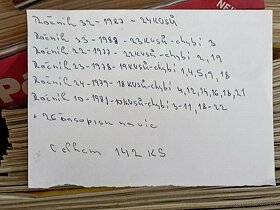 Ročník 32-1987 - 24KUSŮ
Ročník 33-1988 - 23KUSŮ-chybí 3
Ročník 22-1977 - 22KUSŮ-chybí 2,19
Ročník 23-1978 - 19KUSŮ-chybí 1,4,5,9,18
Ročník 24-1979 - 18KUSŮ-chybí 4,12,14,16,18,21
Ročník 10-1981 - 10KUSŮ-chybí 3-11,18-22
+ 26 časopisů navíc
Celkem 142 KS